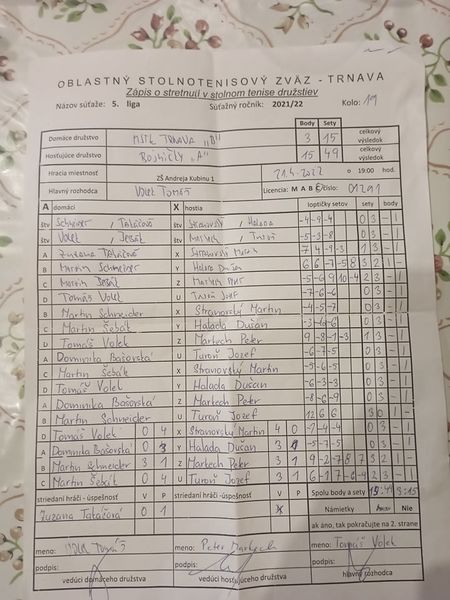 OBLASTNÝ STOLNOTENISOVÝ ZVÄZ - TRNAVA
Zápis o stretnutí v stolnom tenise družstiev
Názov súťaže: 5. liga Súťažný ročník: 2021/22 Kolo:
Body Sety
Domáce družstvo MSTK TRNAVA "D" 3 15 celkový výsledok
Hosťujúce družstvo BOJNIČKY "A" 15 49 celkový výsledok
Hracia miestnosť ZŠ Andreja Kubinu 1 21.4.2022 o 19:00 hod.
Hlavný rozhodca VOLEK TOMÁŠ Licencia: M A B C číslo: 01291
A domáci X hostia loptičky setov sety body
štv Schneider, Takáčová štv Stranovský, Halada -4 -9 -4 0 3 - 1
štv Volek, Šebák štv Markech, Turoň -5 -3 -8 0 3 - 1
A Zuzana Takáčová X Stranovský Martin 7 -4 -9 -3 1 3 - 1
B Martin Schneider Y Halada Dušan 6 6 -7 -5 8 3 2 1 -
C Martin Šebák Z Markech Peter -5 -6 9 10 -4 2 3 - 1
D Tomáš Volek U Turoň Jozef -7 -6 -6 0 3 - 1
B Martin Schneider X Stranovský Martin -4 -5 -7 0 3 - 1
C Martin Šebák Y Halada Dušan -3 -10 -6 0 3 - 1
D Tomáš Volek Z Markech Peter 9 -8 -1 -3 1 3 - 1
A Dominika Bašovská U Turoň Jozef -6 -7 -5 0 3 - 1
C Martin Šebák X Stranovský Martin -5 -6 -5 0 3 - 1
D Tomáš Volek Y Halada Dušan -6 -3 -3 0 3 - 1
A Dominika Bašovská Z Markech Peter -8 -6 -9 0 3 - 1
B Martin Schneider U Turoň Jozef 12 6 6 3 0 1 -
D Tomáš Volek 0 4 X Stranovský Martin 4 0 -1 -4 -4 0 3 - 1
A Dominika Bašovská 0 3 Y Halada Dušan 3 1 -5 -7 -5 0 3 - 1
B Martin Schneider 3 1 Z Markech Peter 3 1 9 -2 -7 8 7 3 2 1 -
C Martin Šebák 0 4 U Turoň Jozef 3 1 6 -1 7 -6 -9 2 3 - 1
striedaní hráči - úspešnosť V P striedaní hráči - úspešnosť V P Spolu body a sety 15:49 3:15
Zuzana Takáčová 0 1 Námietky Áno Nie
ak áno, tak pokračujte na 2. strane
meno: Volek Tomáš meno: Peter Markech meno: Tomáš Volek
podpis: podpis: podpis:
vedúci domáceho družstva vedúci hosťujúceho družstva hlavný rozhodca